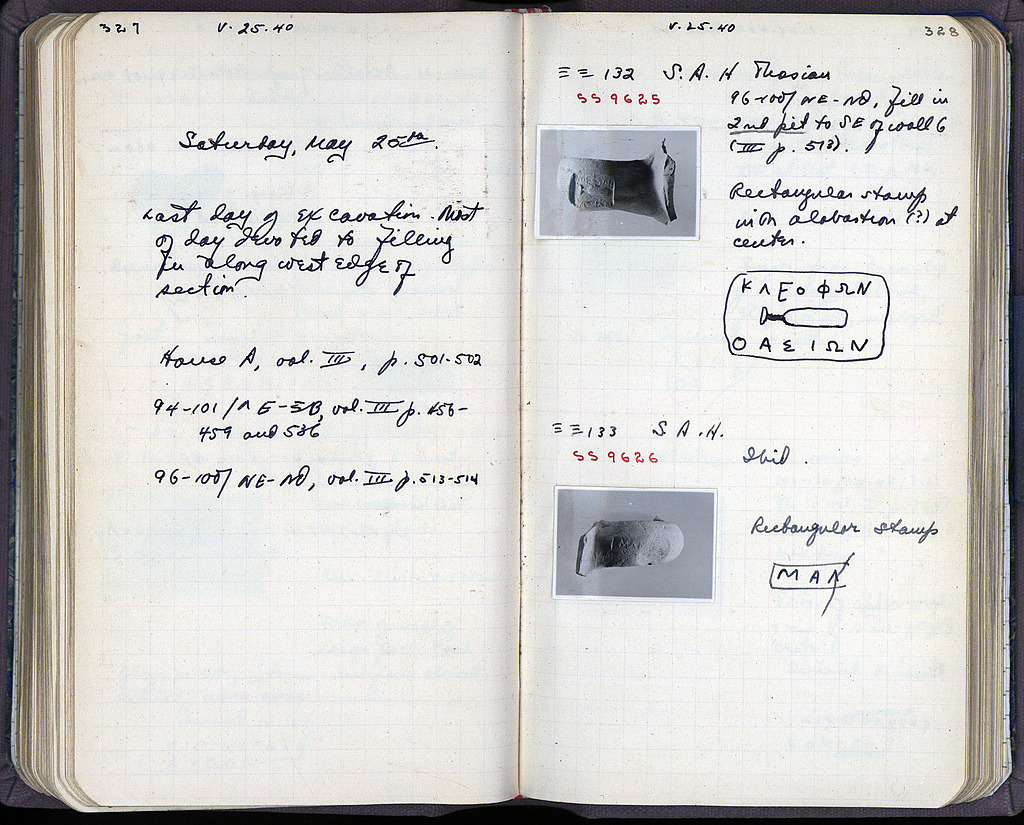 327
V. 25. 40
Saturday, May 25th.
Last day of excavation. Most
of day devoted to filling
in along west edge of
section.
House A, vol. III, p. 501-502
94-101/ΛE-ΞB, vol. III p. 456-
459 and 536
96-100/NE-ND, vol. III p. 513-514
V. 25. 40
328
ΞΞ 132 S. A. H Thasian
SS 9625
96-100/NE-ND, fill in
2nd pit to SE of wall 6
(III p. 513).
Rectangular stamp
with alabastron (?) at
center.
ΚΛΕΟΦΩΝ
ΘΑΣΙΩΝ
ΞΞ 133 S. A. H.
SS 9626
Ibid.
Rectangular stamp